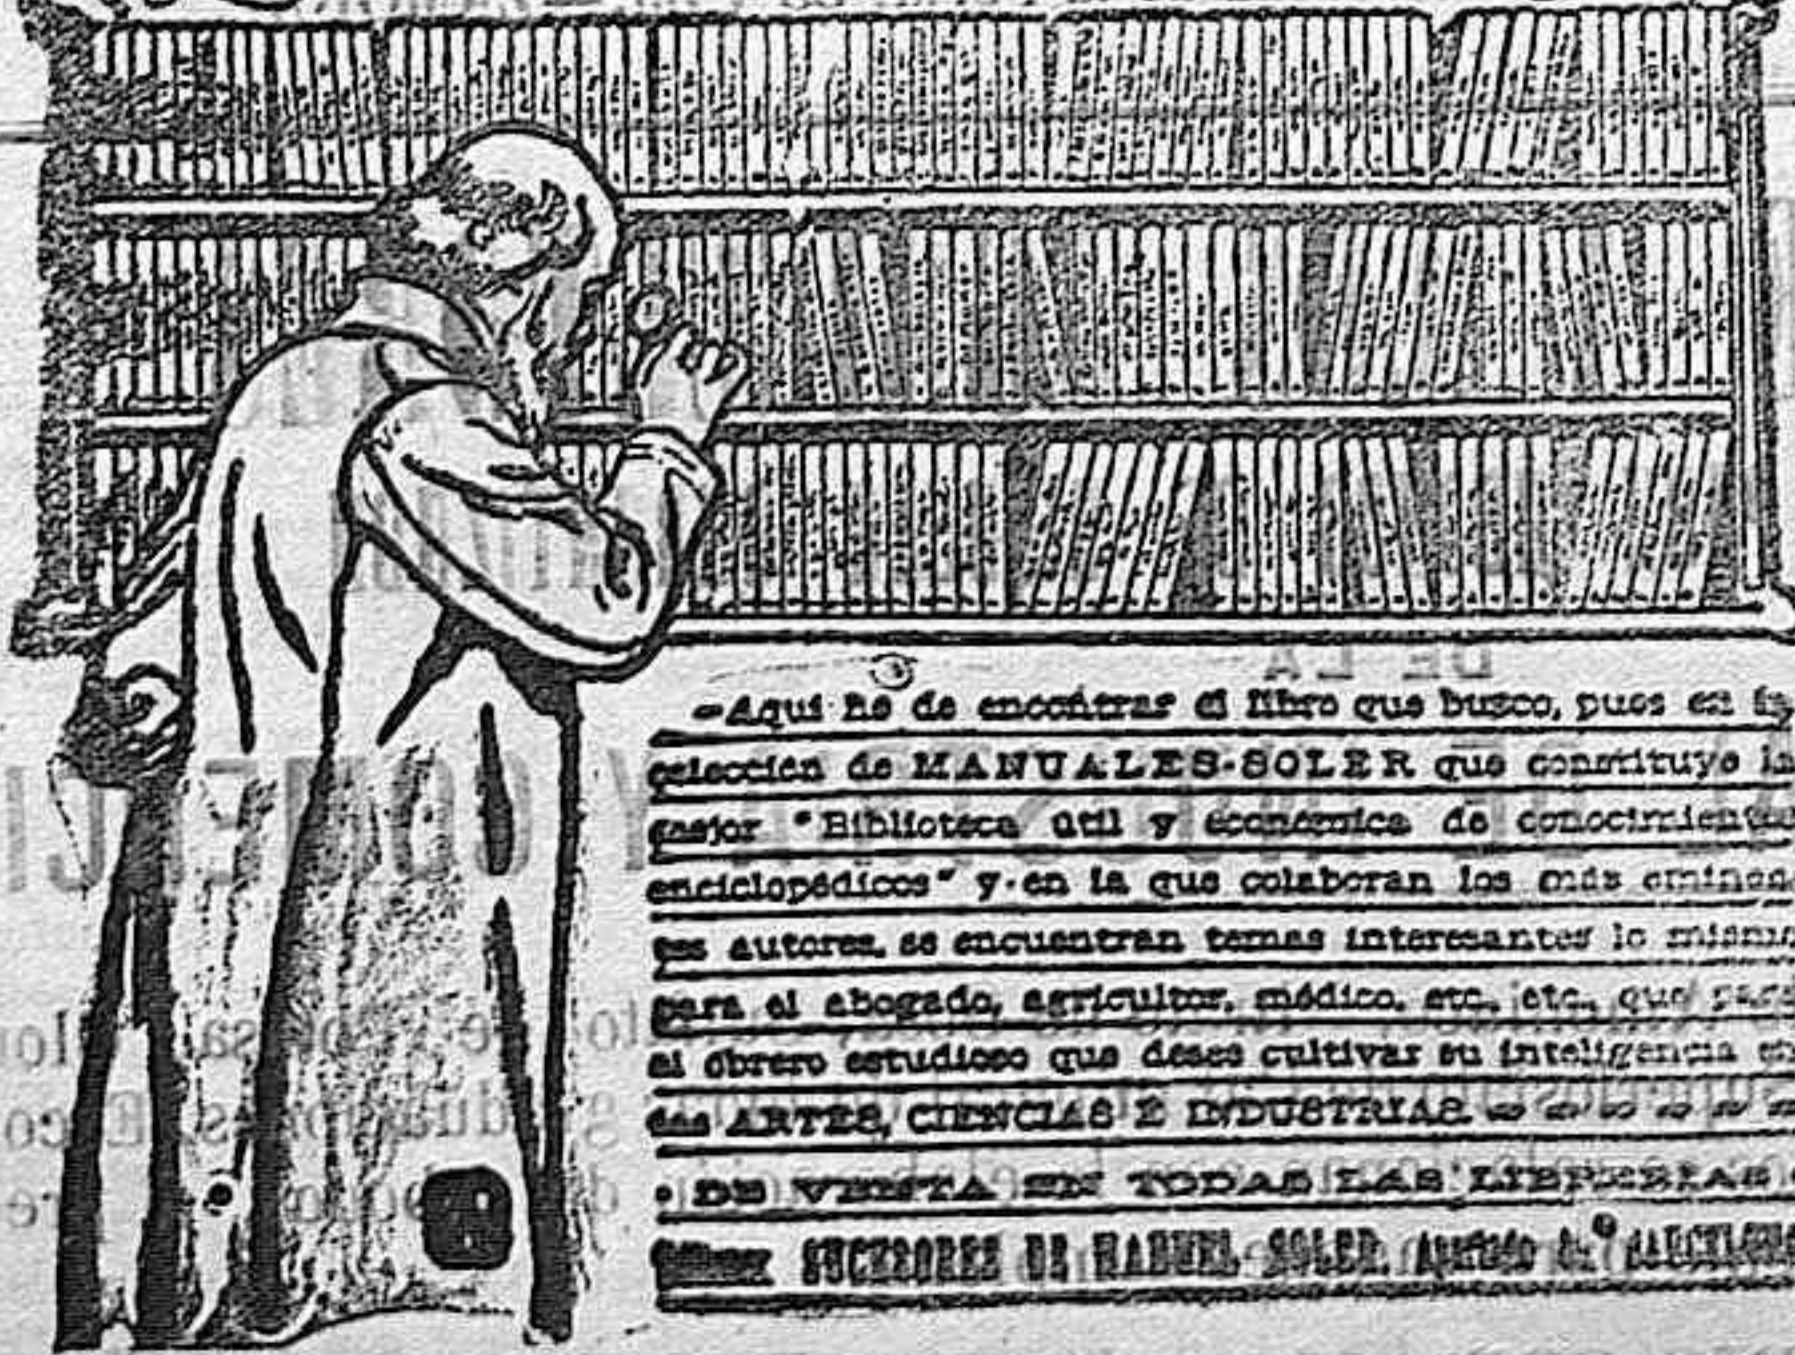 —Aquí he de encontrar el libro que busco, pues en la
colección de MANUALES-SOLER que constituye la
mejor "Biblioteca útil y económica de conocimientos
enciclopédicos" y en la que colaboran los más eminen-
tes autores, se encuentran temas interesantes lo mismo
para el abogado, agricultor, médico, etc., etc., que para
el obrero estudioso que desee cultivar su inteligencia en
las ARTES, CIENCIAS E INDUSTRIAS
• DE VENTA EN TODAS LAS LIBRERIAS •
SUCESORES DE MANUEL SOLER, BARCELONA